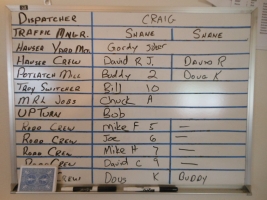 DISPATCHER CRAIG
TRAFFIC MNGR. SHANE SHANE
HAUSER YARD MGR. Gordy
HAUSER CREW DAVID R J. DAVID R
POTLATCH MILL Buddy 2 DOUG K
TROY SWITCHER Bill 10
MRL JOBS Chuck A
UPTURN Bob
ROAD CREW MIKE F 5 —
ROAD CREW JOE 6 —
ROAD CREW MIKE H 7 —
ROAD CREW DAVID C 9 —
CREW DOUG K BUDDY